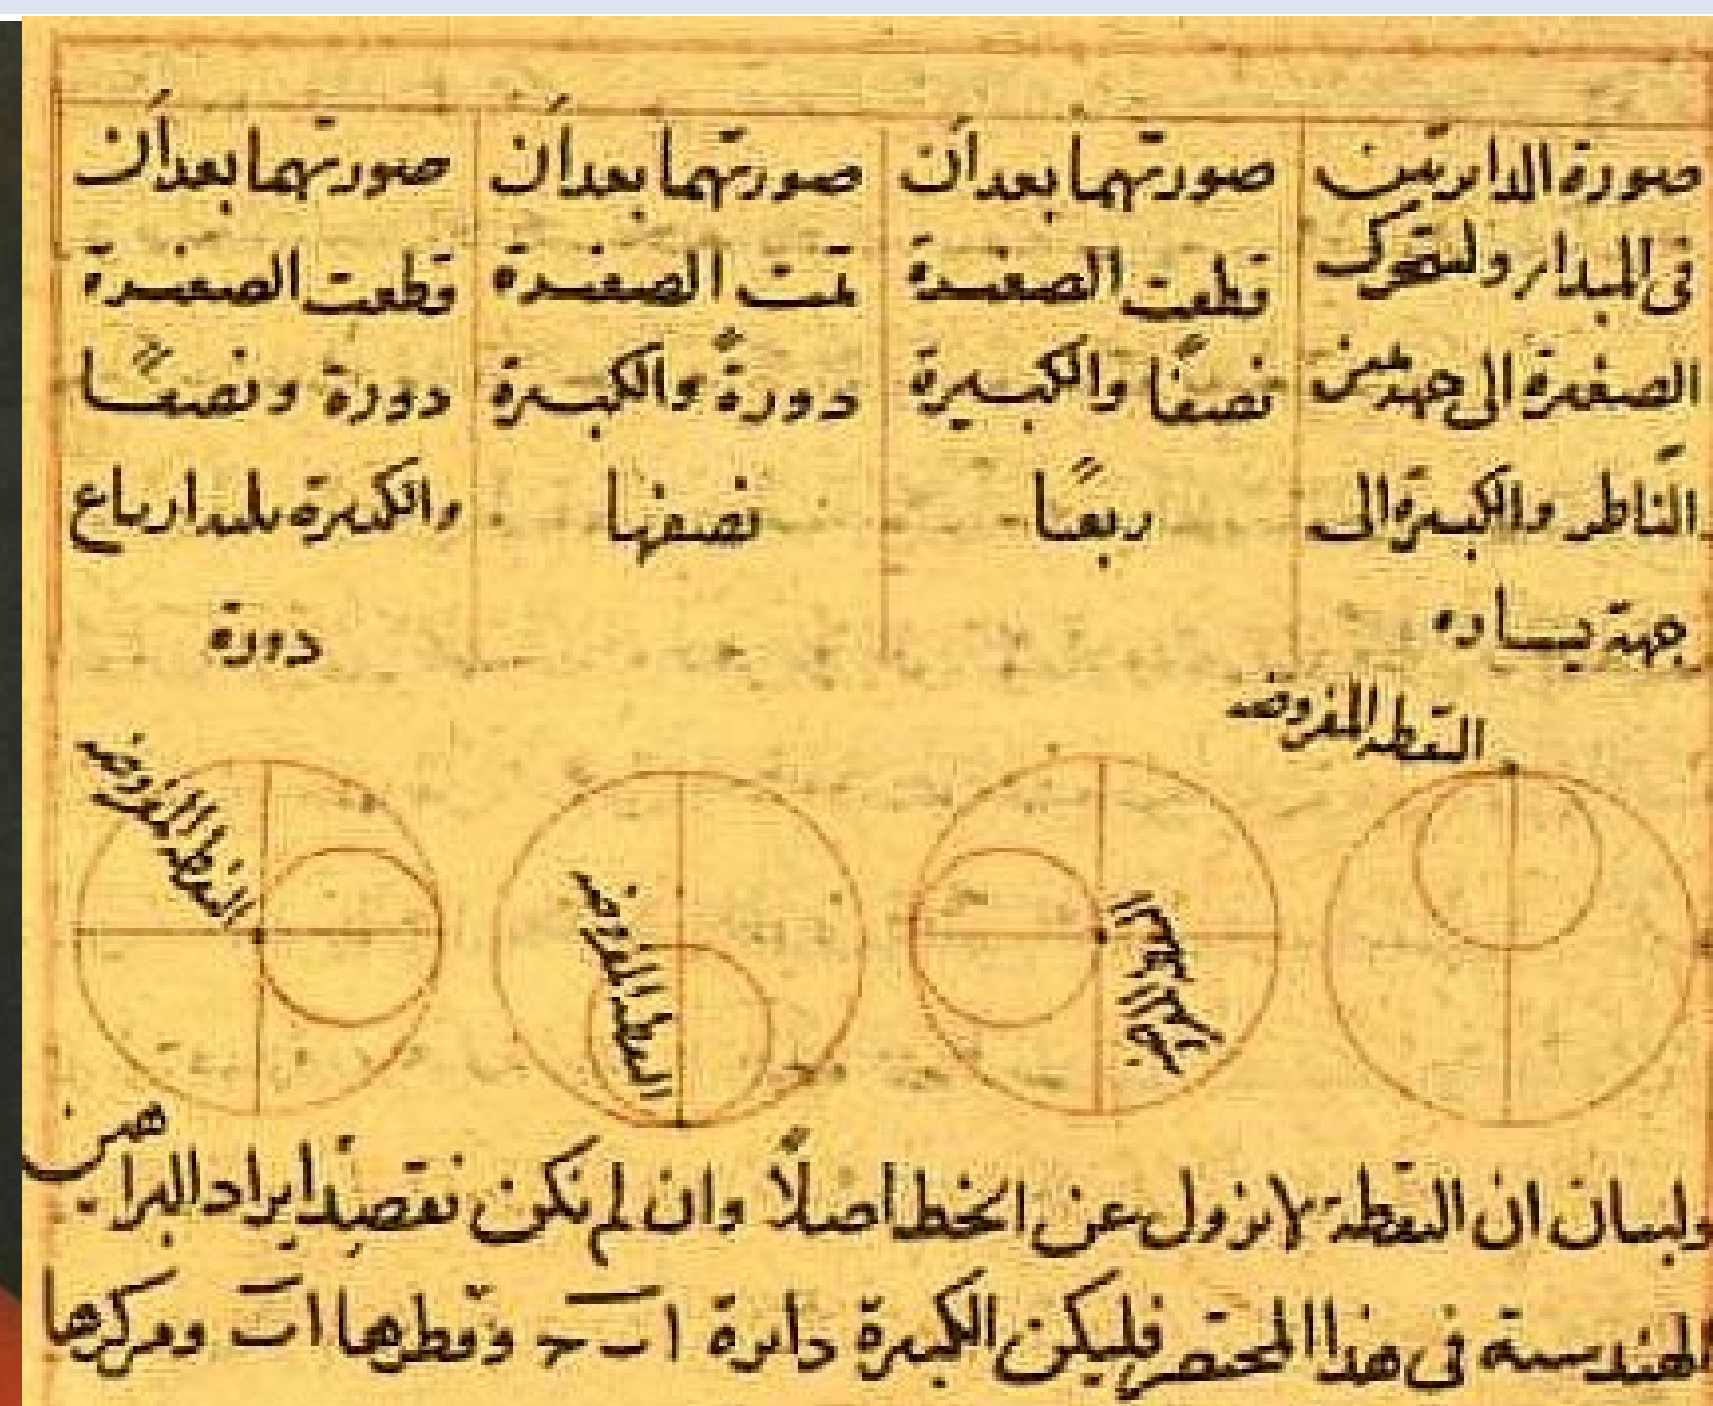 صورة الدائرتين
فى المبدأ ولتتحرك
الصغيرة الى جهة يمين
الناظر والكبيرة الى
جهة يساره
صورتهما بعد أن
قطعت الصغيرة
نصفًا والكبيرة
ربعًا
صورتهما بعد أن
تمت الصغيرة
دورةً والكبيرة
نصفها
صورتهما بعد أن
قطعت الصغيرة
دورة ونصفًا
والكبيرة ثلثة ارباع
دورة
النقطة المفروضة
النقطة المفروضة
النقطة المفروضة
ولبيان ان النقطة لا يزول عن الخط اصلًا وان لم نكن نقصد ايراد البراهين
الهندسية فى هذا المختصر فليكن الكبيرة دائرة ا ب ج وقطرها ا ب ومركزها